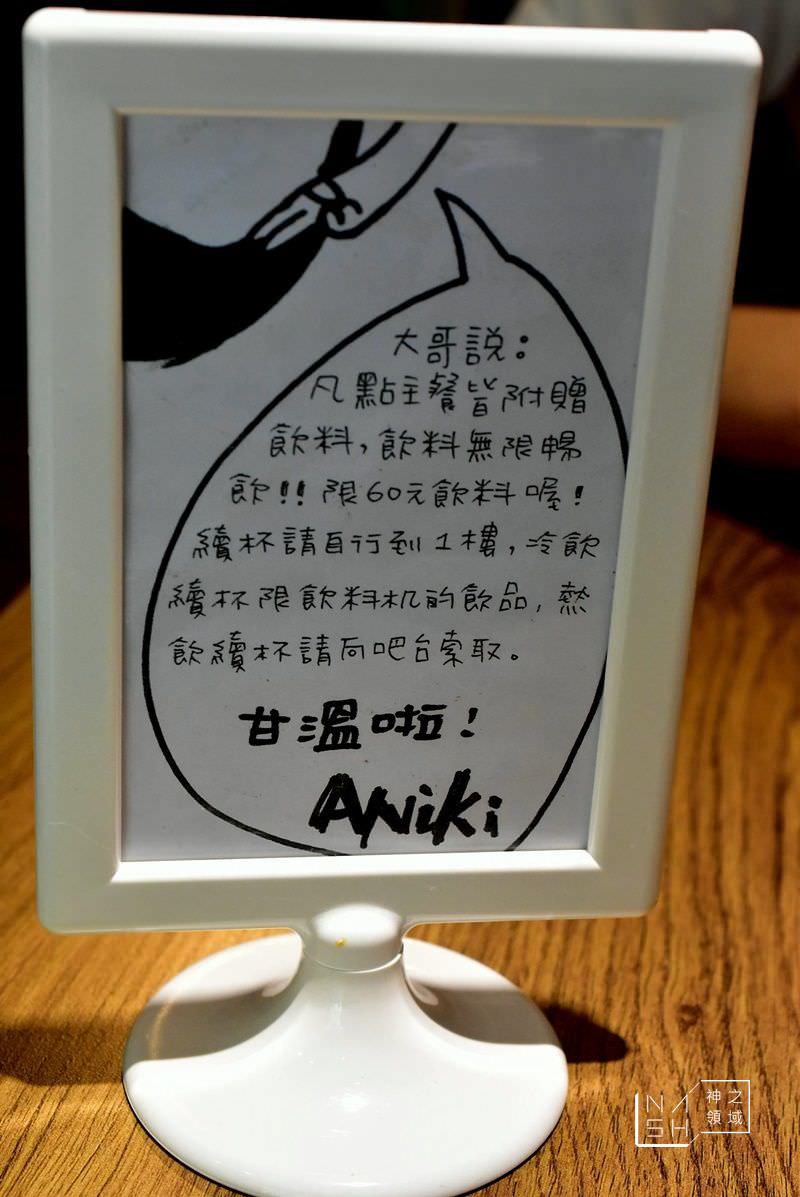 大哥說：
凡點主餐皆附贈
飲料，飲料無限暢
飲!! 限60元飲料喔！
續杯請自行到1樓，冷飲
續杯限飲料机的飲品，熱
飲續杯請向吧台索取。
甘溫啦！
ANiki
NASH
神之
領域